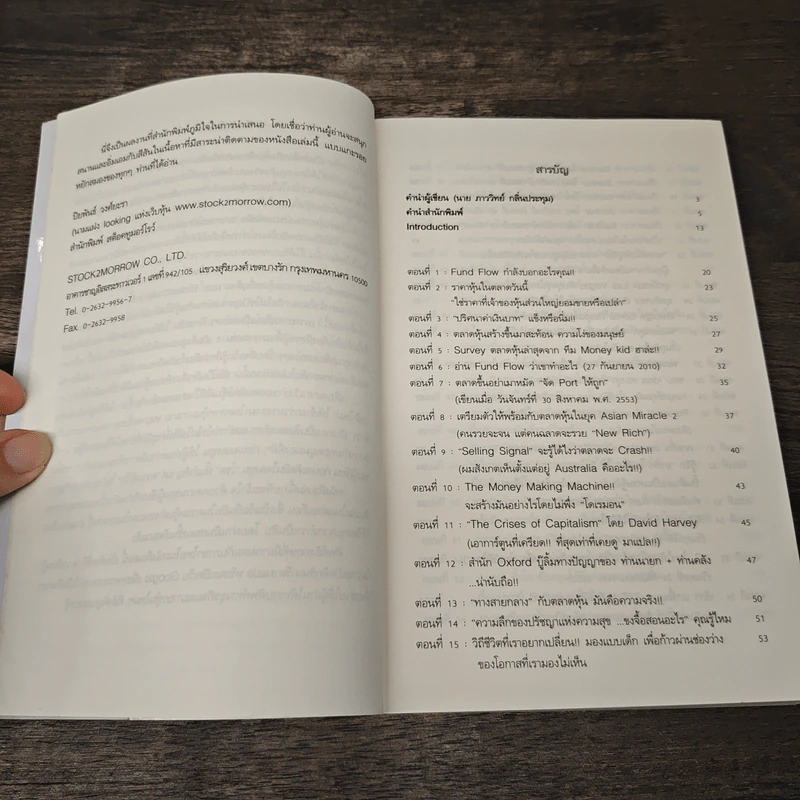 นี่จึงเป็นผลงานที่สำนักพิมพ์ภูมิใจในการนำเสนอ โดยเชื่อว่าท่านผู้อ่านจะสนุก
สนานและอิ่มเอมกับสีสันในเนื้อหาที่มีสาระน่าติดตามของหนังสือเล่มนี้ แบบแกะรอย
หยักสมองของทุกๆ ท่านที่ได้อ่าน
ปิยพันธ์ วงศ์ยะรา
(นามแฝง looking แห่งเว็บหุ้น www.stock2morrow.com)
สำนักพิมพ์ สต็อคทูมอร์โรว์
STOCK2MORROW CO., LTD.
อาคารชาญอิสสระทาวเวอร์ 1 เลขที่ 942/105 แขวงสุริยวงศ์ เขตบางรัก กรุงเทพมหานคร 10500
Tel. 0-2632-9956-7
Fax. 0-2632-9958
สารบัญ
คำนำผู้เขียน (นาย ภาววิทย์ กลิ่นประทุม) 3
คำนำสำนักพิมพ์ 5
Introduction 13
ตอนที่ 1 : Fund Flow กำลังบอกอะไรคุณ!! 20
ตอนที่ 2 : ราคาหุ้นในตลาดวันนี้ 23
"ใช่ราคาที่เจ้าของหุ้นส่วนใหญ่ยอมขายหรือเปล่า"
ตอนที่ 3 : "ปริศนาค่าเงินบาท" แข็งหรือนิ่ม!! 25
ตอนที่ 4 : ตลาดหุ้นสร้างขึ้นมาสะท้อน ความโง่ของมนุษย์ 27
ตอนที่ 5 : Survey ตลาดหุ้นล่าสุดจาก ทีม Money kid ฮาล่ะ!! 29
ตอนที่ 6 : อ่าน Fund Flow ว่าเขาทำอะไร (27 กันยายน 2010) 32
ตอนที่ 7 : ตลาดขึ้นอย่าเมาหมัด "จัด Port ให้ถูก" 35
(เขียนเมื่อ วันจันทร์ที่ 30 สิงหาคม พ.ศ. 2553)
ตอนที่ 8 : เตรียมตัวให้พร้อมกับตลาดหุ้นในยุค Asian Miracle 2 37
(คนรวยจะจน แต่คนฉลาดจะรวย "New Rich")
ตอนที่ 9 : "Selling Signal" จะรู้ได้ไงว่าตลาดจะ Crash!! 40
(ผมสังเกตเห็นตั้งแต่อยู่ Australia คืออะไร!!)
ตอนที่ 10 : The Money Making Machine!! 43
จะสร้างมันอย่างไรโดยไม่พึ่ง "โดเรมอน"
ตอนที่ 11 : "The Crises of Capitalism" โดย David Harvey 45
(เอาการ์ตูนที่เครียด!! ที่สุดเท่าที่เคยดู มาแปล!!)
ตอนที่ 12 : สำนัก Oxford บู๊ลิ้มทางปัญญาของ ท่านนายก + ท่านคลัง 47
...น่านับถือ!!
ตอนที่ 13 : "ทางสายกลาง" กับตลาดหุ้น มันคือความจริง!! 50
ตอนที่ 14 : "ความลึกของปรัชญาแห่งความสุข ...ขงจื้อสอนอะไร" คุณรู้ไหม 51
ตอนที่ 15 : วิถีชีวิตที่เราอยากเปลี่ยน!! มองแบบเด็ก เพื่อก้าวผ่านช่องว่าง 53
ของโอกาสที่เรามองไม่เห็น